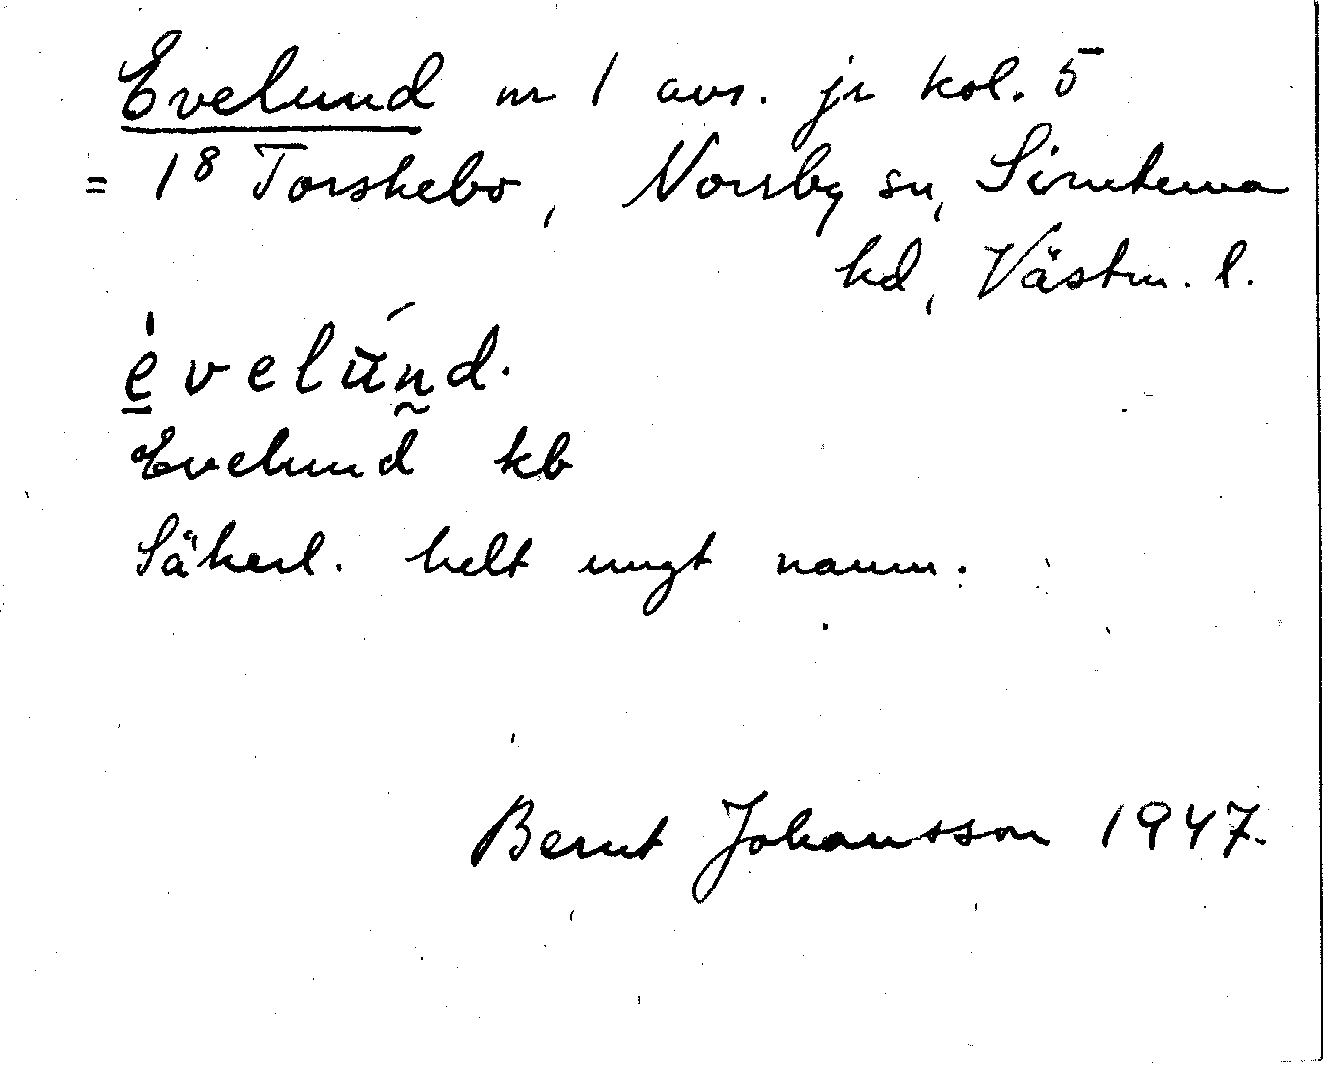 Evelund nr 1 avs. jr kol. 5
= 1⁸ Torskebo, Norrby sn, Simtuna
hd, Västm. l.
évelúnd.
Evelund kb
Säkerl. helt ungt namn.
Bernt Johansson 1947.